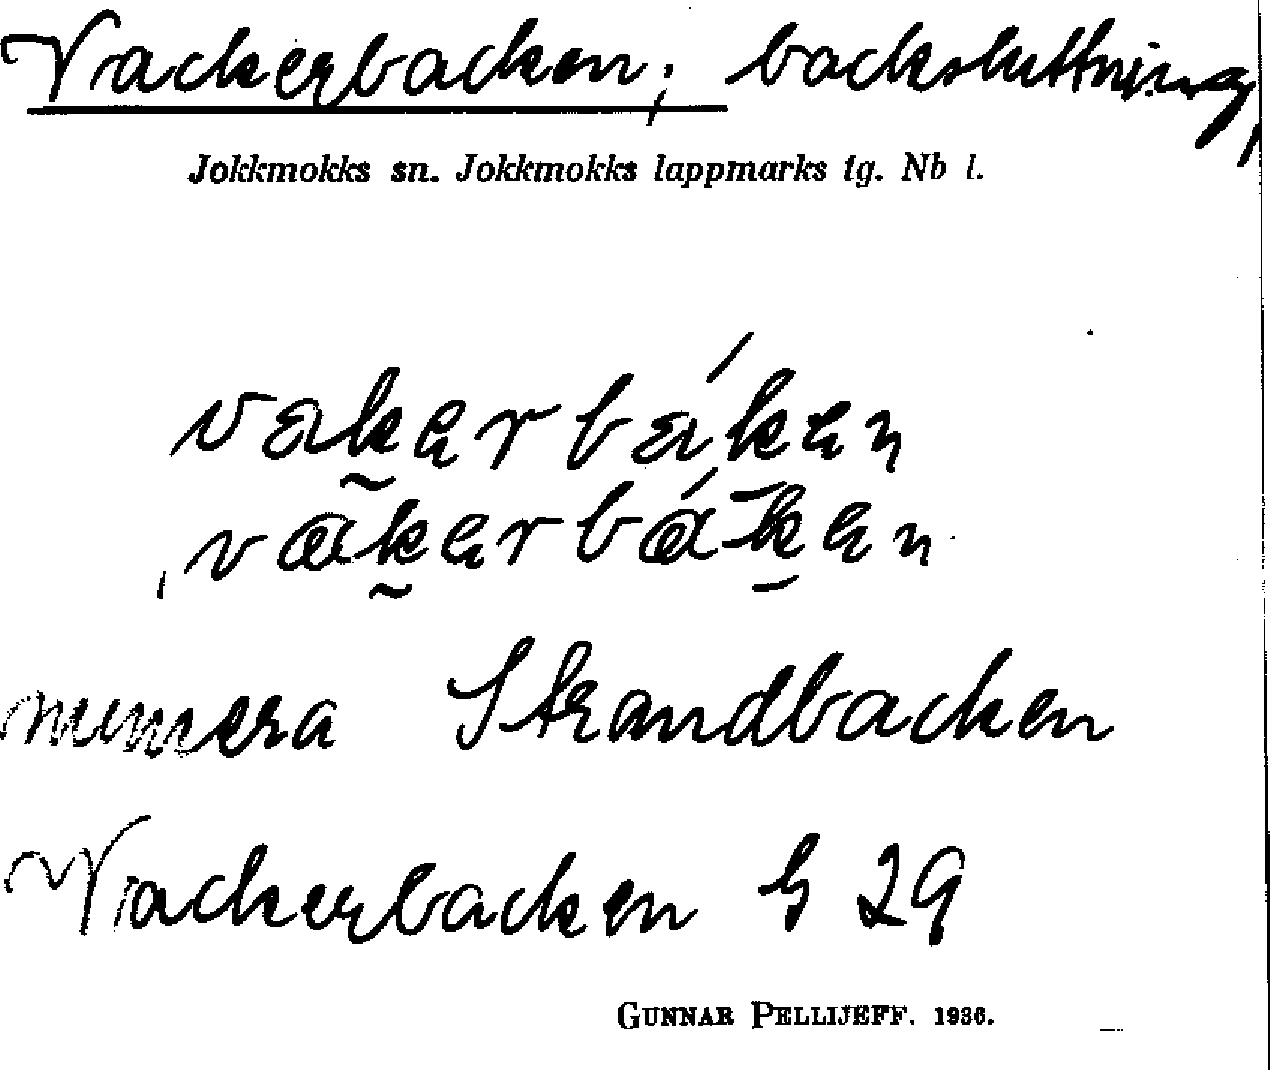 Vackerbacken, backsluttning,
Jokkmokks sn. Jokkmokks lappmarks tg. Nb l.
vak̰erbáken
, vak̰erbák̠en
numera Strandbacken
Vackerbacken G 29
GUNNAR PELLIJEFF. 1936.